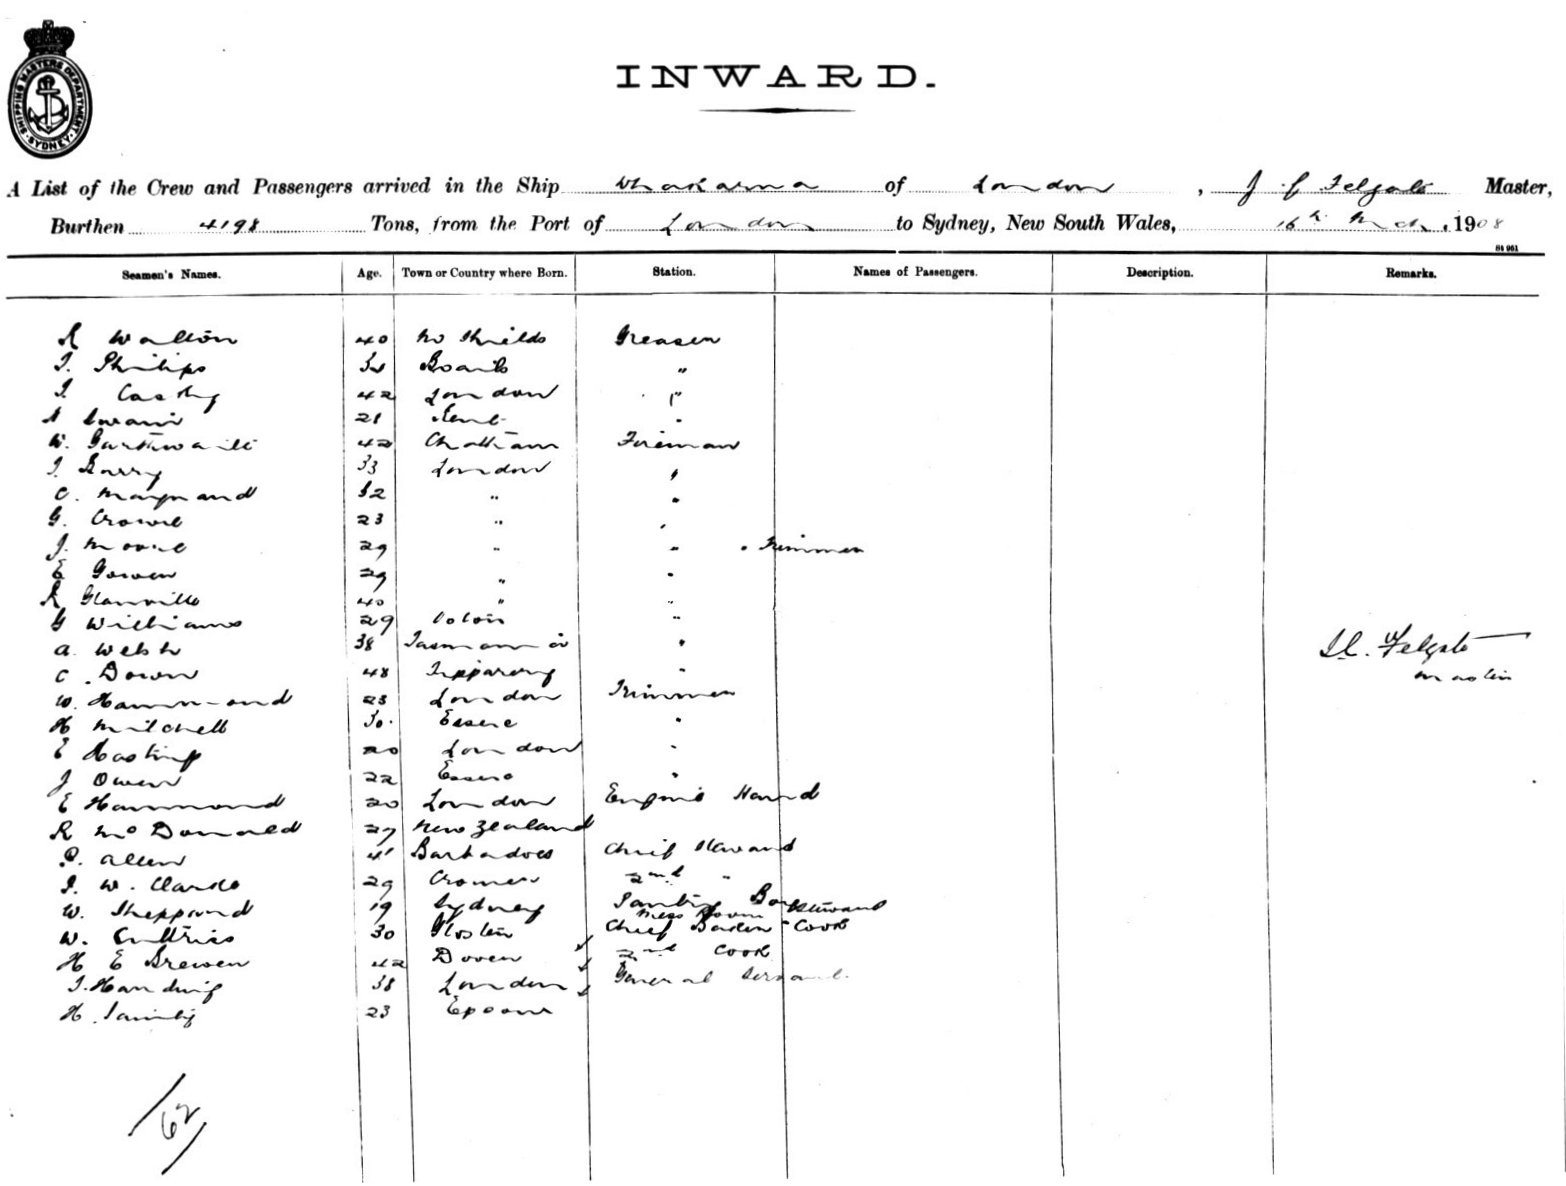 SHIPPING MASTERS DEPARTMENT. SYDNEY.
INWARD.
A List of the Crew and Passengers arrived in the Ship Whakarua of London, J. F. Felgate Master,
Burthen 4198 Tons, from the Port of London to Sydney, New South Wales, 16th Mch, 1908
84 961
Seamen's Names. Age. Town or Country where Born. Station. Names of Passengers. Description. Remarks.
R Walton 40 No Shields Greaser
T. Philips "
42 London "
21 Kent "
W. 42 Chatham Fireman
T. Barry 33 London "
C. Maynard 32 " "
G. Crowe 23 " "
J. Moore 29 " " . Trimmer
E Gowen 29 " "
R Glanville 40 " "
G Williams 29 "
A Webb 38 Tasmania "
C. Down 48 "
W. Hammond 23 London Trimmer
H Mitchell 30 Essex "
E Hastings 20 London "
J Owen 22 Essex "
E Hammond 20 London Engine Hand
R McDonald 27 New Zealand
P. Allen 41 Barbadoes Chief Steward
J. W. Clarke 29 Cromer 2nd "
W. Sheppard 19 Sydney Pantry Boy
Mess Room Steward
W. 30 Gloster Chief Baker & Cook
H E Brewer 42 Dover 2nd Cook
T. Harding 38 London General Servant
H. 23 Epsom
Felgate
Master
62